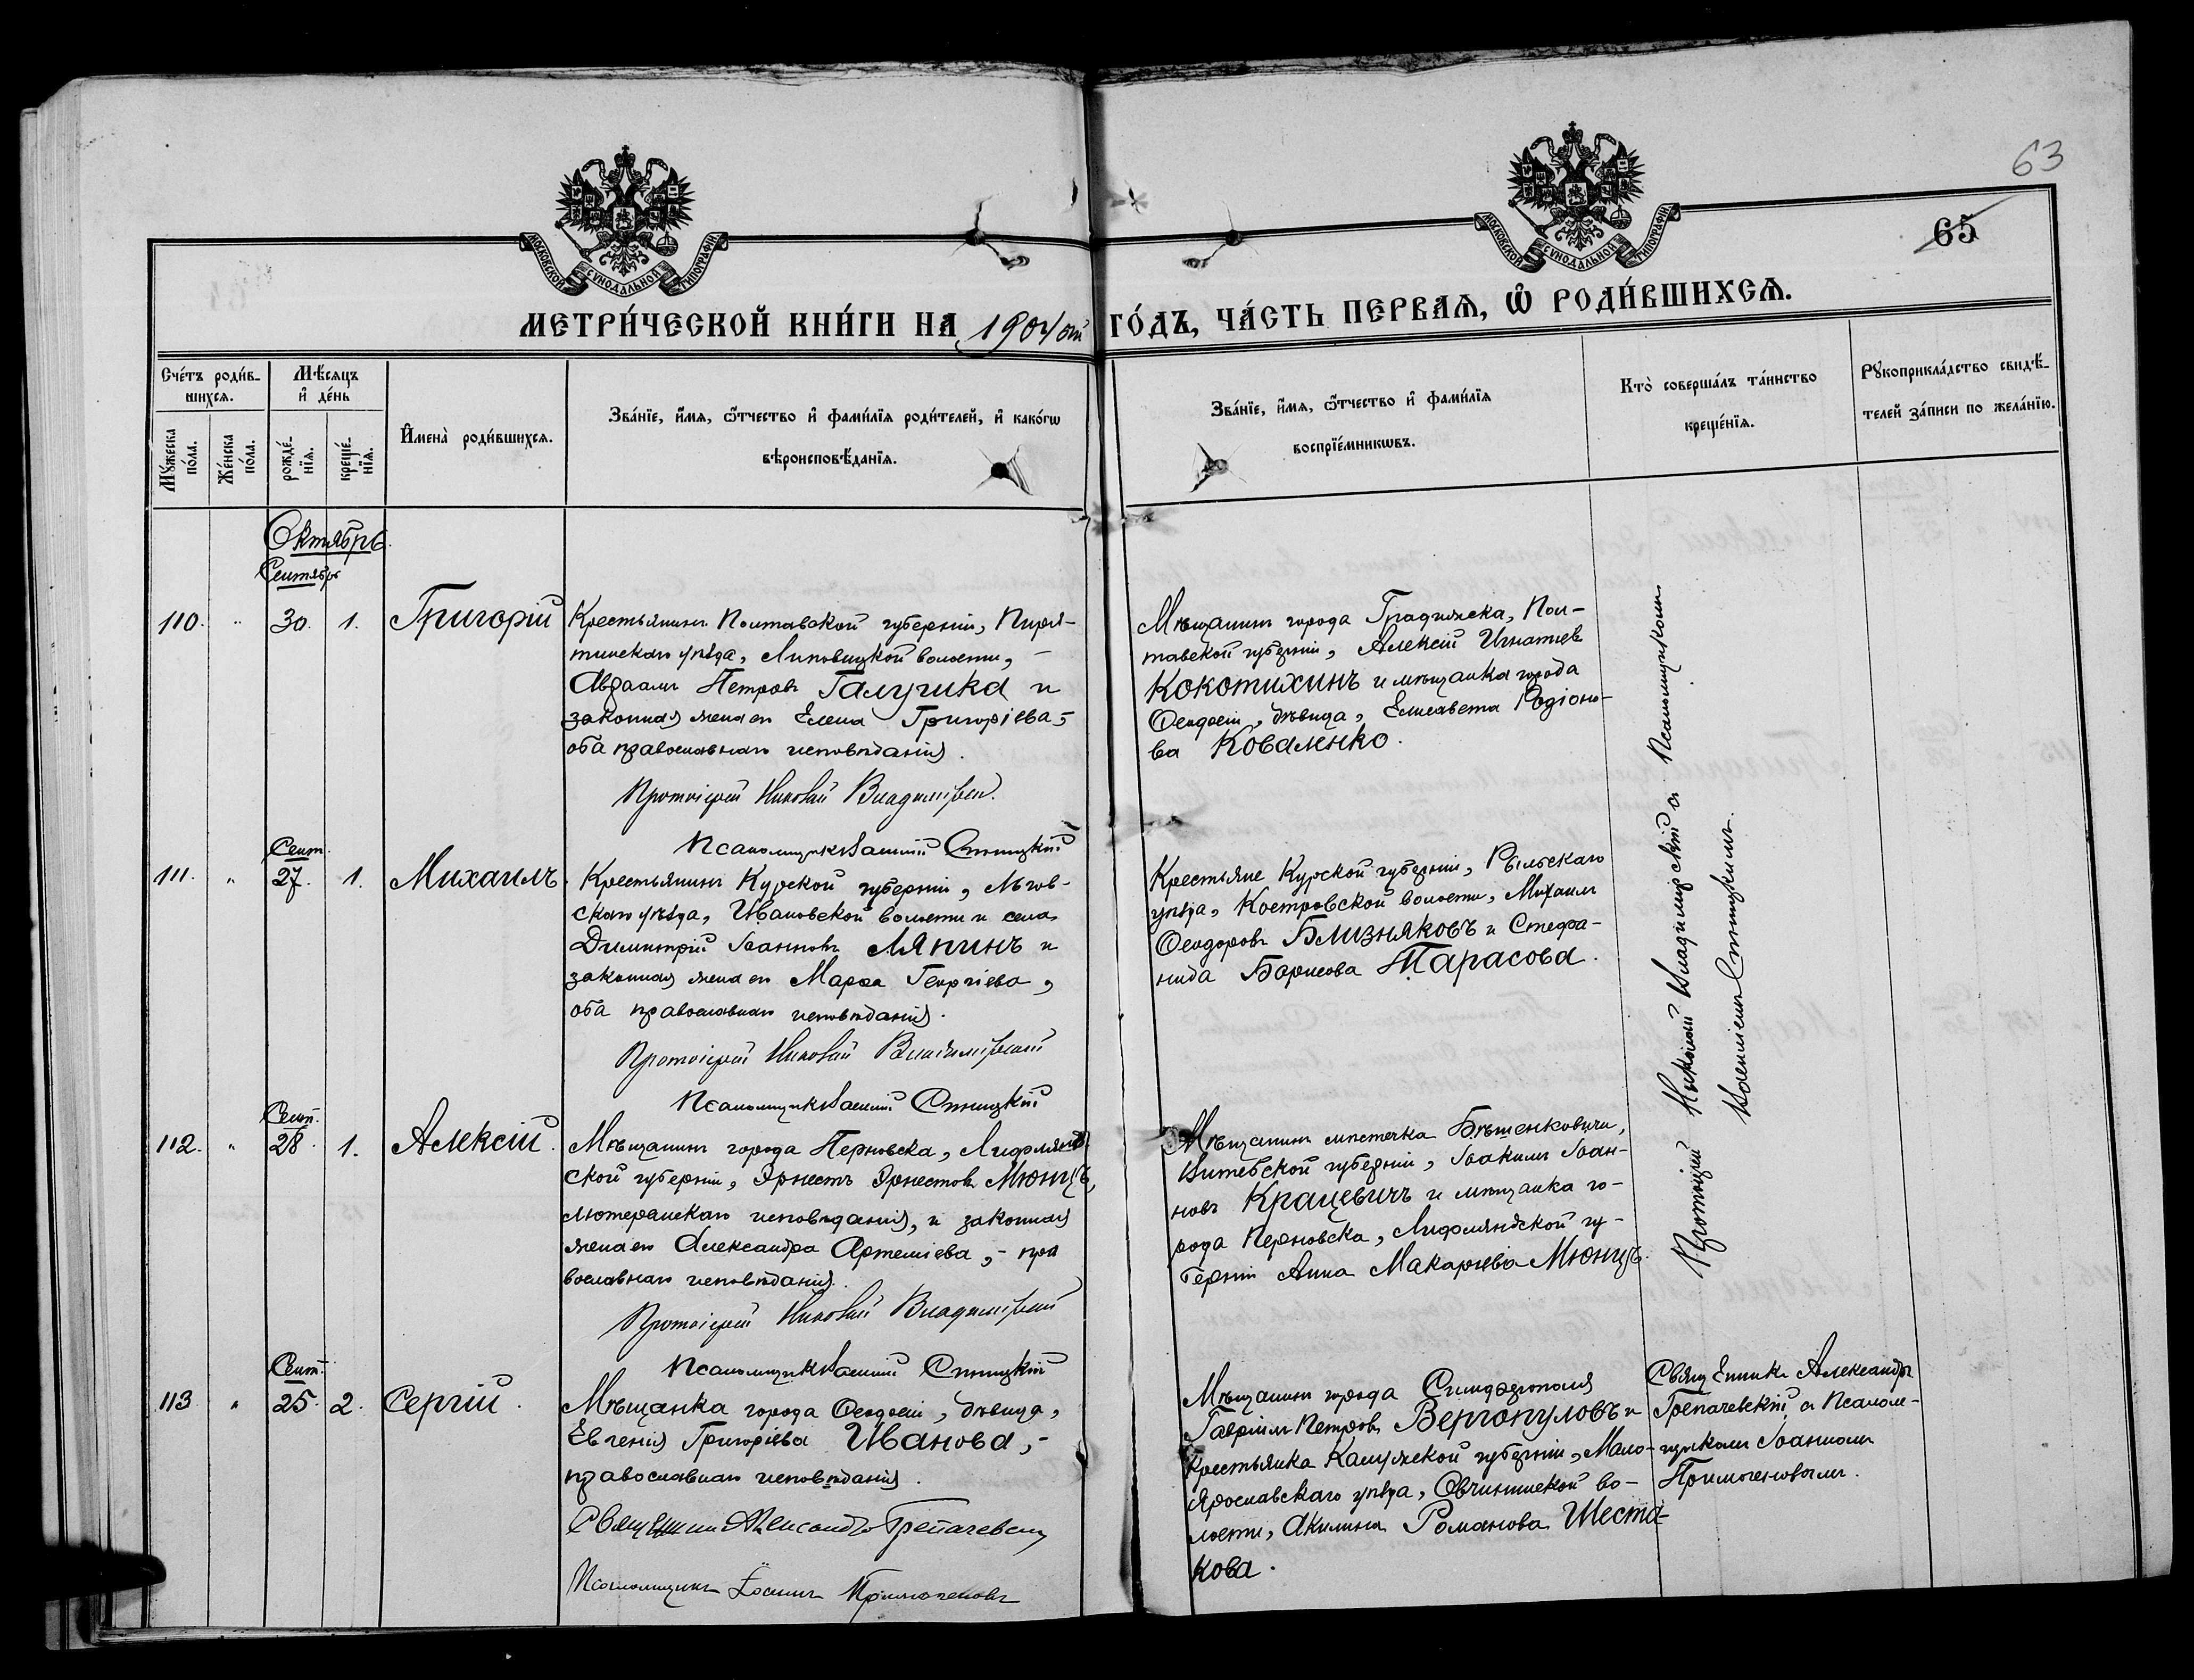 63
65
МОСКОВСКОЙ СѴНОДАЛЬНОЙ ТИПОГРАФІИ.
МОСКОВСКОЙ СѴНОДАЛЬНОЙ ТИПОГРАФІИ.
МЕТРИ́ЧЕСКОЙ КНИ́ГИ НА 1904 ой ГО́ДЪ, ЧА́СТЬ ПЕРВАѦ, Ѡ РОДИ́ВШИХСѦ.
Сче́тъ роди́в-
шихся.
Мѣ́сяцъ
и҆ де́нь
Мꙋ́жеска
по́ла.
Же́нска
по́ла.
рожде́-
нїя.
креще́-
нїя.
И҆мена̀ роди́вшихся.
Зва́нїе, и҆́мя, ѻ҆́тчество и҆ фами́лїя роди́телей, и҆ како́гѡ
вѣроисповѣ́данїя.
Зва́нїе, и҆́мя, ѻ҆́тчество и҆ фами́лїя
воспрїе́мникѡвъ.
Кто̀ соверша́лъ та́инство
креще́нїя.
Рꙋкоприкла́дство свидѣ́-
телей за́писи по жела́нїю.
Октябрь.
Сентябрь
110. " 30. 1. Григорій
Крестьянинъ Полтавской губерніи, Пиря-
тинскаго уѣзда, Липовицкой волости, –
Авраамъ Петровъ Галушка и
законная жена его Елена Григоріева,
оба православнаго исповѣданія.
Протоіерей Николай Владимірскій.
Псаломщикъ Василій Стницкій
Мѣщанинъ города Градижска, Пол-
тавской губерніи, Алексій Игнатіев
Кокотихинъ и мѣщанка города
Ѳеодосіи, дѣвица, Елисавета Родіоно-
ва Коваленко.
Сент.
111. " 27. 1. Михаилъ.
Крестьянинъ Курской губерніи, Льгов-
скаго уѣзда, Ивановской волости и села
Димитрій Іоанновъ Ляпинъ и
законная жена его Марѳа Георгіева,
оба православнаго исповѣданія.
Протоіерей Николай Владимірскій
Псаломщикъ Василій Стницкій
Крестьяне Курской губерніи, Рыльскаго
уѣзда, Костровской волости, Михаилъ
Ѳеодоровъ Близняковъ и Стефа-
нида Борисова Тарасова.
Сент.
112. " 28. 1. Алексій.
Мѣщанинъ города Перновска, Лифлянд-
ской губерніи, Эрнестъ Эрнестовъ Мюнцъ,
лютеранскаго исповѣданія, и законная
жена его Александра Артеміева, – пра
вославнаго исповѣданія.
Протоіерей Николай Владимірскій
Псаломщикъ Василій Стницкій
Мѣщанинъ мѣстечка Бѣшенковичи,
Витебской губерніи, Іоакимъ Іоан-
новъ Крацевичъ и мѣщанка го-
рода Перновска, Лифляндской гу-
берніи Анна Макаріева Мюнцъ.
Протоіерей Николай Владимірскій съ Псаломщикомъ
Василіемъ Стницкимъ.
Сент.
113 " 25. 2. Сергій.
Мѣщанка города Ѳеодосіи, дѣвица,
Евгенія Григоріева Иванова, –
православнаго исповѣданія.
Священникъ Александръ Грепачевскій
Псаломщикъ Іоаннъ Примоченовъ
Мѣщанинъ города Симферополя
Гавріилъ Петровъ Вергопуловъ и
крестьянка Калужской губерніи, Мало-
ярославскаго уѣзда, Овчининской во-
лости, Акилина Романова Шеста-
кова.
Священникъ Александръ
Грепачевскій съ Псалом-
щикомъ Іоанномъ
Примоченовымъ.